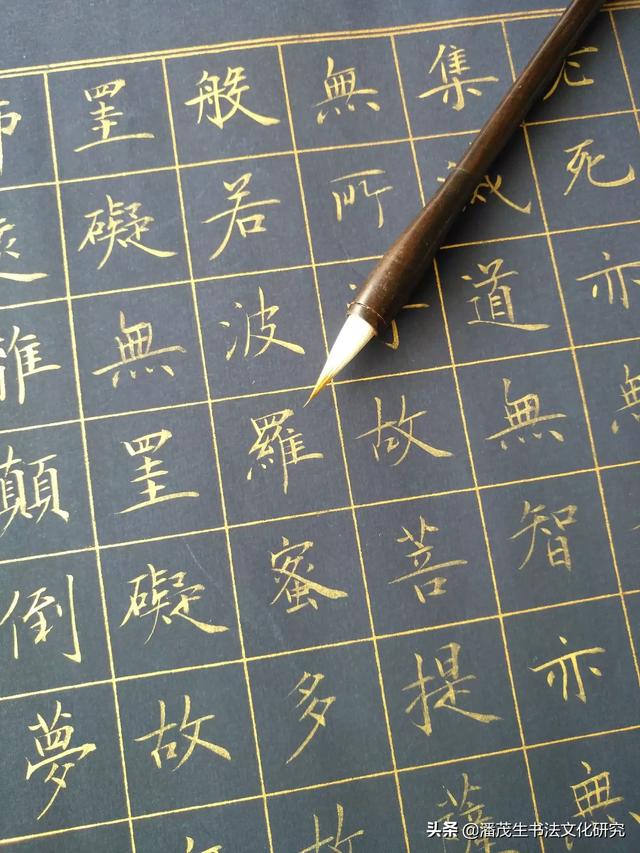 死亦無
集滅道無智亦無
無所故菩提薩
般若波羅蜜多故
罣礙無罣礙故
離顛倒夢
头条 @潘茂生书法文化研究